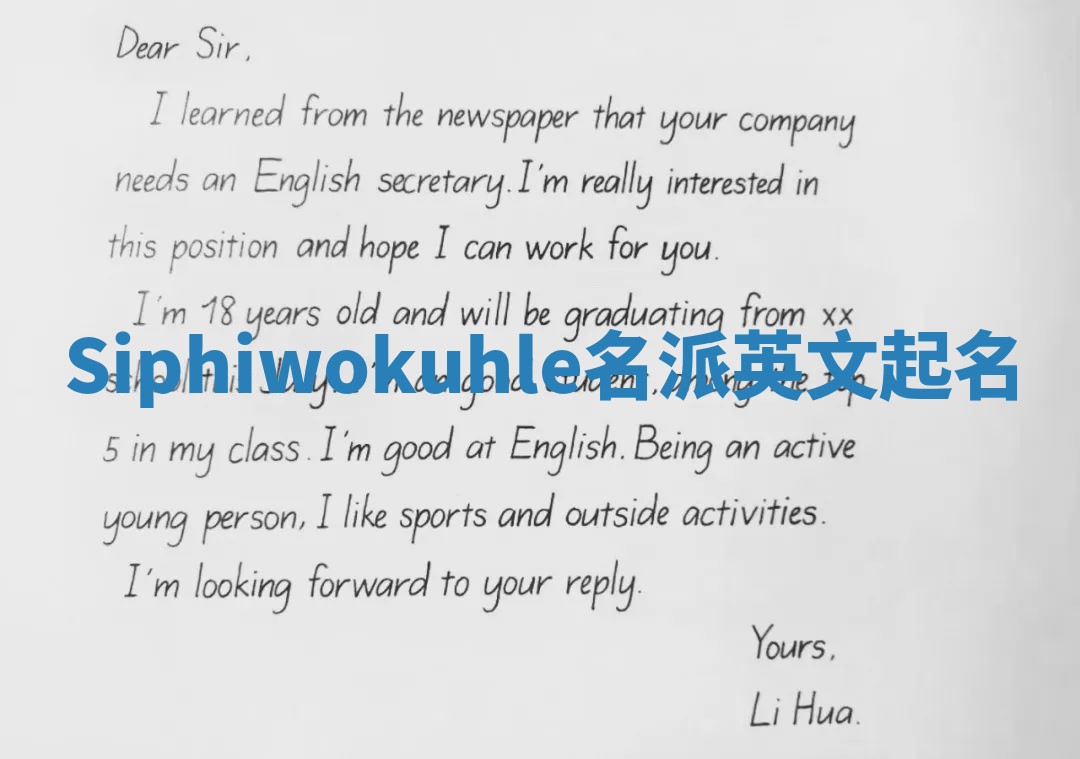 Dear Sir,
I learned from the newspaper that your company
needs an English secretary. I'm really interested in
this position and hope I can work for you.
I'm 18 years old and will be graduating from xx
Siphiwokuhle名派英文起名
school July student, among the top
5 in my class. I'm good at English. Being an active
young person, I like sports and outside activities.
I'm looking forward to your reply.
Yours,
Li Hua.